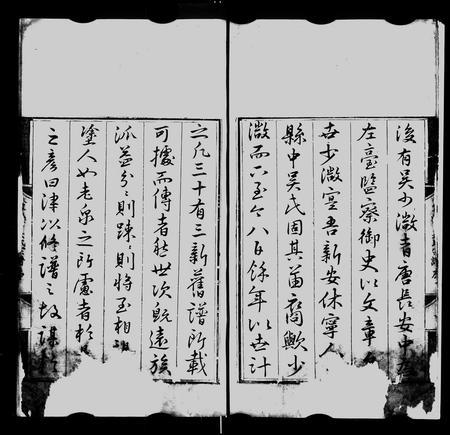 後有吳少微者唐長安中
左臺監察御史以文章
世少微寔吾新安休寧人
縣中吳氏固其苗裔歟少
微而下至今八百餘年以世計
之凡三十有三新舊譜所載
可據而傳者然世次既遠族
派益分分則踈踈則將至相
塗人如老泉之所慮者於
之彥田津以修譜之故謀